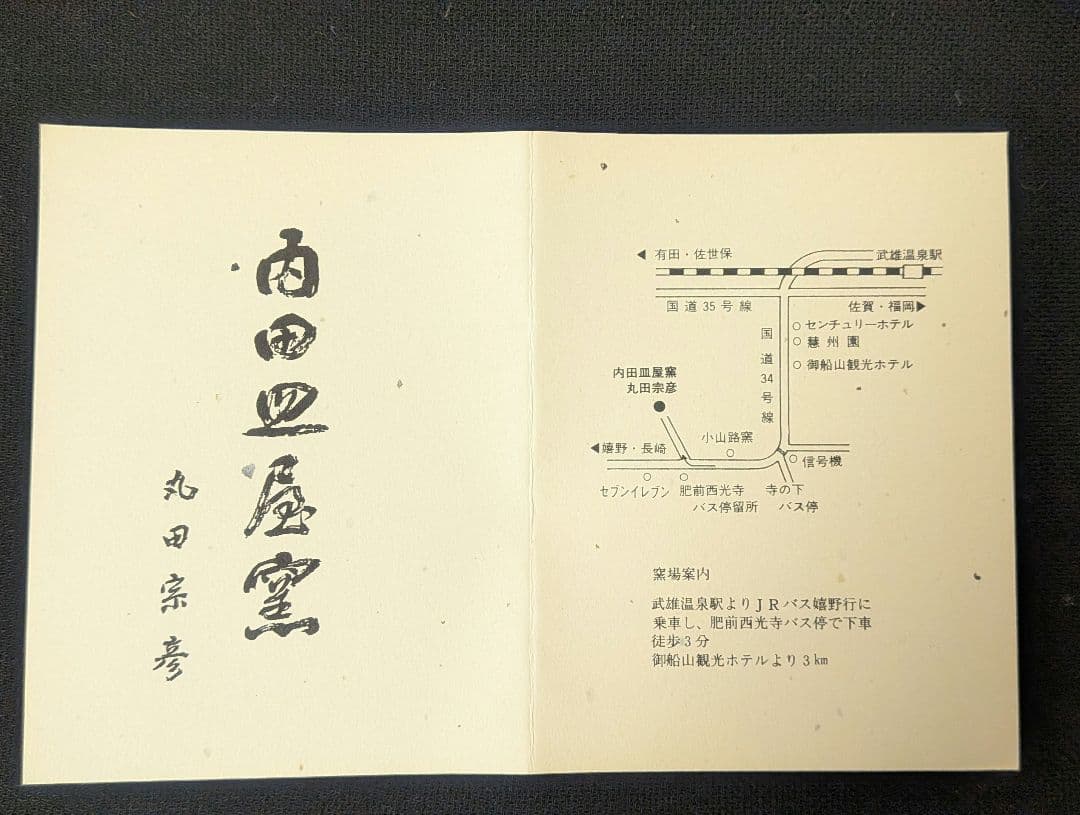 内田皿屋窯
丸田宗彦
有田・佐世保
武雄温泉駅
国道35号線
佐賀・福岡
センチュリーホテル
慧州園
御船山観光ホテル
国道34号線
内田皿屋窯
丸田宗彦
小山路窯
嬉野・長崎
信号機
セブンイレブン
肥前西光寺
バス停留所
寺の下
バス停
窯場案内
武雄温泉駅よりJRバス嬉野行に
乗車し、肥前西光寺バス停で下車
徒歩3分
御船山観光ホテルより3km